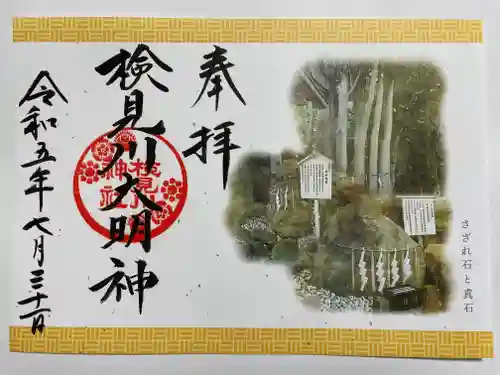 奉拝
検見川大明神
検見川
神社
令和五年七月三十一日
さざれ石と貢石